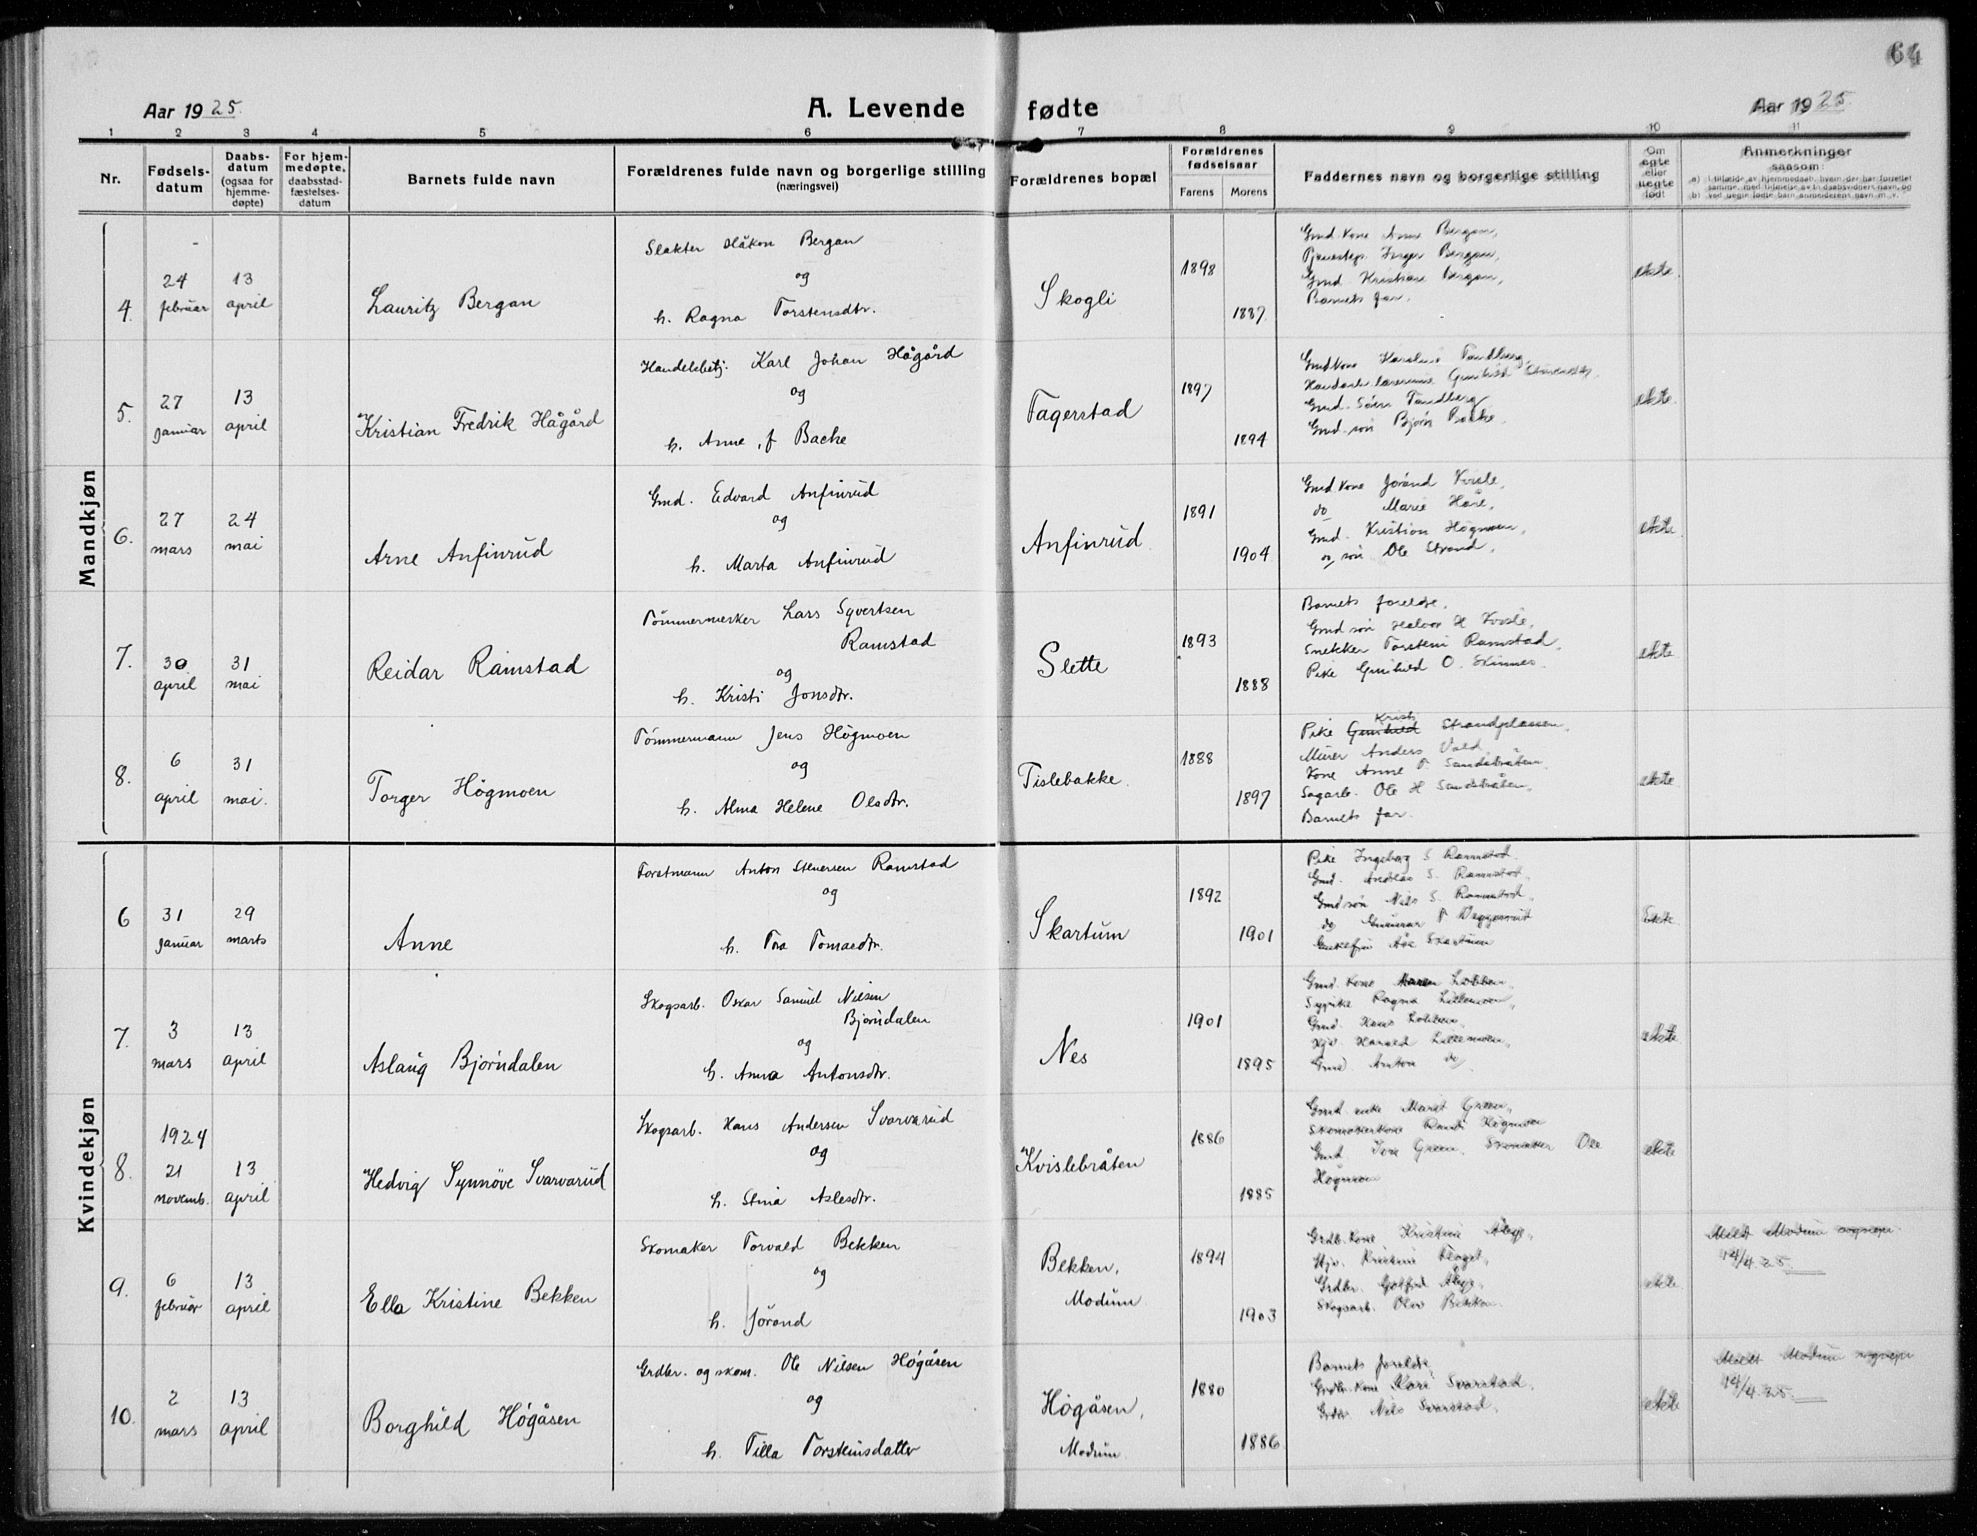 64
Aar 1925.
A. Levende fødte
Aar 1925.
1 2 3 4 5 6 7 8 9 10 11
Nr.
Fødsels-
datum
Daabs-
datum
(ogsaa for
hjemme-
døpte)
For hjem-
medøpte,
daabsstad-
fæstelses-
datum
Barnets fulde navn
Forældrenes fulde navn og borgerlige stilling
(næringsvei)
Forældrenes bopæl
Forældrenes
fødselsaar
Farens Morens
Faddernes navn og borgerlige stilling
Om
egte
eller
uegte
født
Anmerkninger
saasom:
Mandkjøn
4.
24
februar
13
april
Lauritz Bergan
Slakter Håkon Bergan
og
h. Ragna Torstensdtr.
Skogli
1898
1887.
Gmd. kone Anne Bergan,
Inger Bergan,
Gmd. Kristian Bergan,
Barnets far.
ekte.
5.
27
januar
13
april
Kristian Fredrik Hågård
Handelsbetj. Karl Johan Hågård
og
h. Anne, f. Bache
Fagerstad
1897
1894
Gmd kone Karoline Tandberg,
Gmd. Sören Tandberg
Gmd. sön Björn Bache.
ekte.
6.
27
mars
24
mai
Arne Anfinrud
Gmd. Edvard Anfinrud
og
h. Marta Anfinrud
Anfinrud
1891
1904
Gmd. kone Jorånd Kvisle,
do Marie Håre,
Gmd. Kristian Högmoen,
sön Ole Strand.
ekte
7.
30
april
31
mai
Reidar Ramstad
Tömmermerker Lars Syvertsen
Ramstad
og
h. Kristi Jonsdtr.
Slette
1893
1888
Barnets foreldre,
Gmd sön Halvor H Kvisle,
Snekker Torstein Ramstad,
Pike Gunhild O. Skinnes.
ekte
8.
6
april
31
mai.
Torger Högmoen
Tömmermann Jens Högmoen
og
h. Alma Helene Olsdtr.
Tislebakke.
1888
1897
Kristi
Pike Gunhild Strandplassen,
Murer Anders Vold,
Kone Anne Sandsbråten,
Sagarb. Ole H Sandsbråten,
Barnets far.
ekte
Kvindekjøn
6
31
januar
29
marts
Anne
Forstmann Anton Stenersen Ramstad
og
h. Tea Tomasdtr.
Skartum
1892
1901
Pike Ingeborg S Ramstad.
Gmd. Andreas S. Ramstad,
Gmd sön Nils S. Ramstad,
do Gunnar
Skartum
Ekte
7.
3
mars
13
april
Aslaug Björndalen
Skogsarb. Oskar Samuel Nilsen
Björndalen
og
h. Anna Antonsdtr.
Nes
1901
1895
Gmd. kone Maren Lobben,
Sypike Ragna Lillemoen,
Gmd. Hans Lobben,
Harald Lillemoen,
Gmd Anton do
ekte
8.
1924
21
novemb.
13
april
Hedvig Synnöve Svarvarud
Skogsarb. Hans Andersen Svarvarud
og
h. Stina Aslesdtr.
Kvislebråten
1886
1885
Gmd. enke Marit Green,
Skomakerkone Randi Högmoen
Gmd. Iver Green. Skomaker Ole
Högmoen
ekte
9.
6
februar
13
april
Ella Kristine Bekken
Skomaker Torvald Bekken
og
h. Jörand
Bekken,
Modum
1894
1903
Grdb. kone Kristine
Kristine
Grdbr. Gotfred
Skogsarb. Olav Bekken.
ekte
Meldt Modum sognepr
14/4 25.
10.
2
mars
13
april
Borghild Högåsen
Grdbr. og skom. Ole Nilsen Högåsen
og
h. Tilla Torsteinsdatter
Högåsen,
Modum
1880
1886
Barnets foreldre
Grdb. kone Kari Svarstad,
Grdbr Nils Svarstad.
ekte
Meldt Modum sognepr
14/4.25.